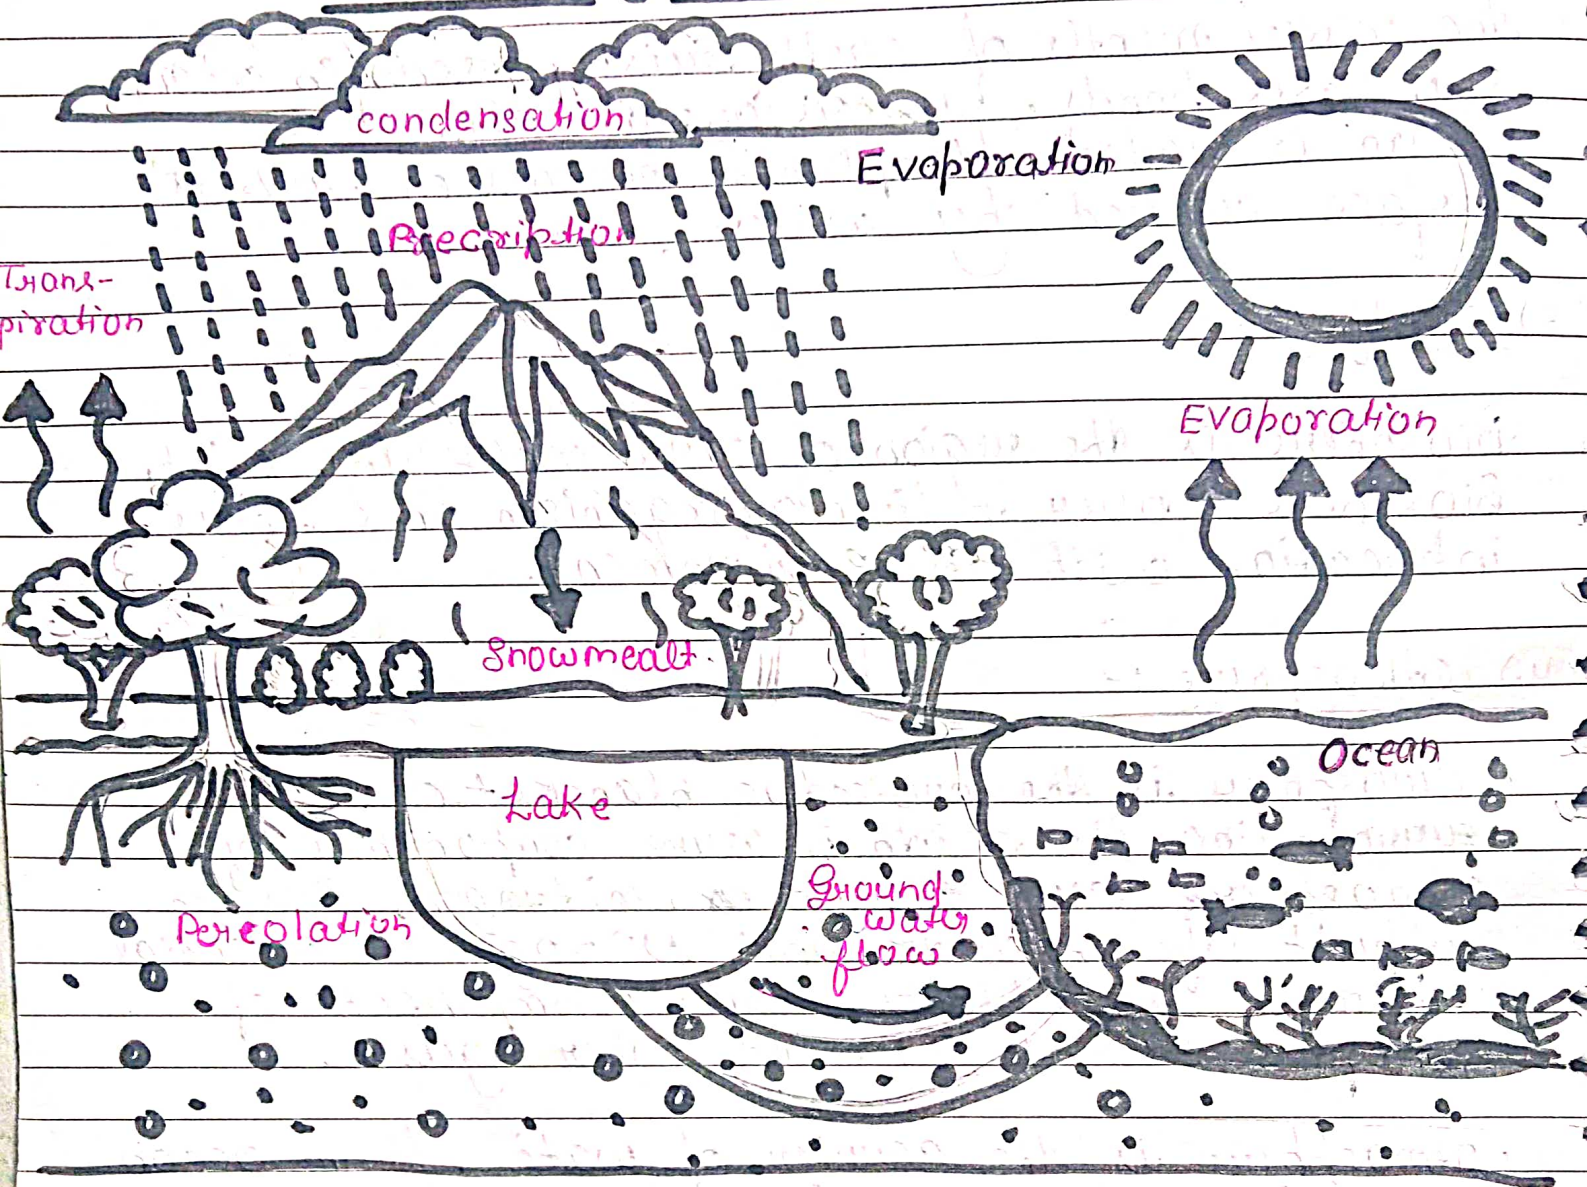 condensation
Evaporation
Precription
Trans-
piration
Evaporation
Snowmealt
Ocean
Lake
Ground
water
flow
Percolation